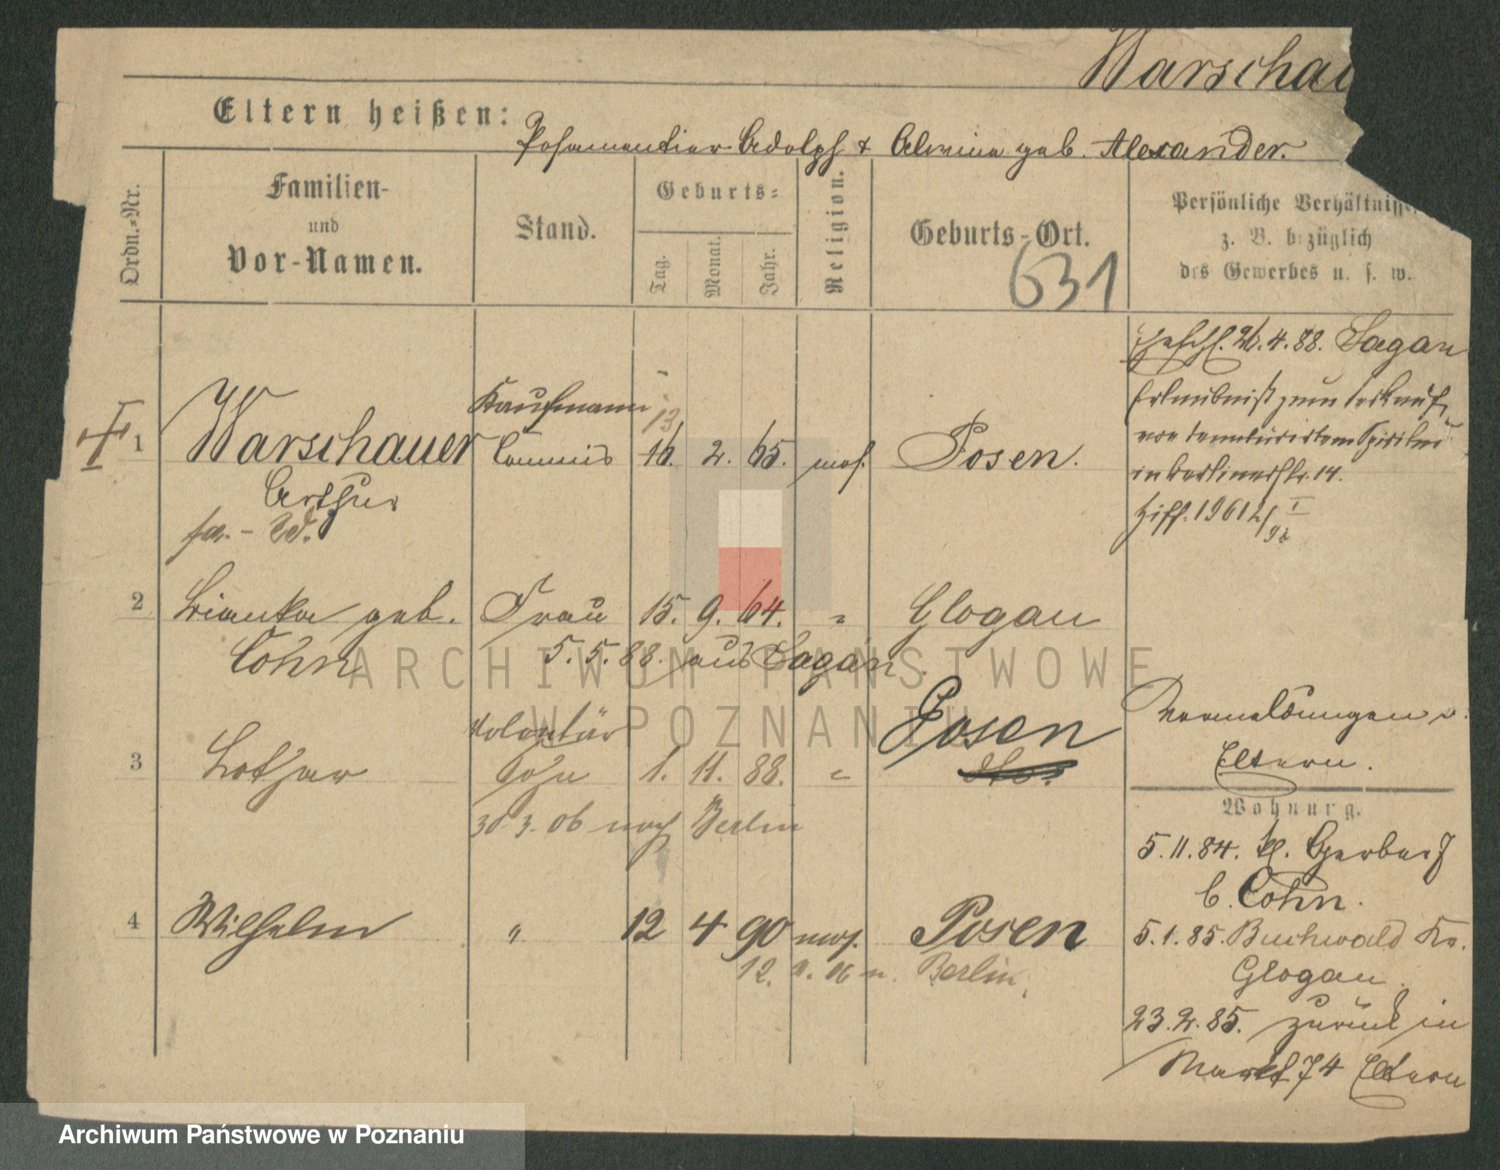 Warschau
Eltern heißen: Posamentier Adolph & Alwine geb. Alexander.
Ordn.-Nr.
Familien- und Vor-Namen.
Stand.
Geburts-
Tag. Monat. Jahr.
Religion.
Geburts-Ort.
631
Persönliche Verhältnisse
z. B. bezüglich
des Gewerbes u. s. w.
26.4.88. Sagan
Erlaubniß zum Verkauf
von denaturirtem Spiritus
in Berlinerstr. 14.
Kaufmann
13
1 Warschauer Commis 16. 2. 65. mos. Posen.
Arthur
2 Bianka geb. Frau 15. 9. 64. " Glogau
Cohn 5.5.88. aus Sagan.
Volontär Posen
3 Lothar Sohn 1. 11. 88. " dto.
30.3.06 nach Berlin
4 Wilhelm " 12 4 90 mos. Posen
12. 11. 06 n. Berlin.
Vermeldungen s.
Eltern.
Wohnung.
5.11.84. kl. Gerberst
b. Cohn.
5.1.85. Buchwald Kr.
Glogau.
23.2.85. zurück in
Markt 74 Eltern
ARCHIWUM PAŃSTWOWE
W POZNANIU
Archiwum Państwowe w Poznaniu